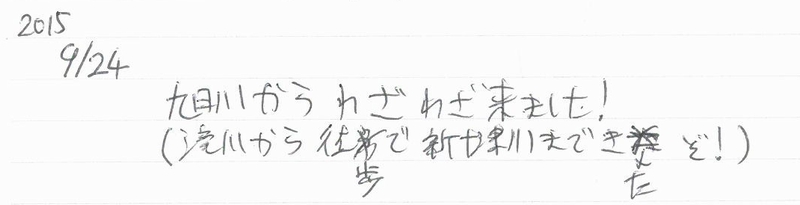 2015
9/24
旭川から わざわざ来ました!
(滝川から 徒歩で 新十津川まできた ぞ!)